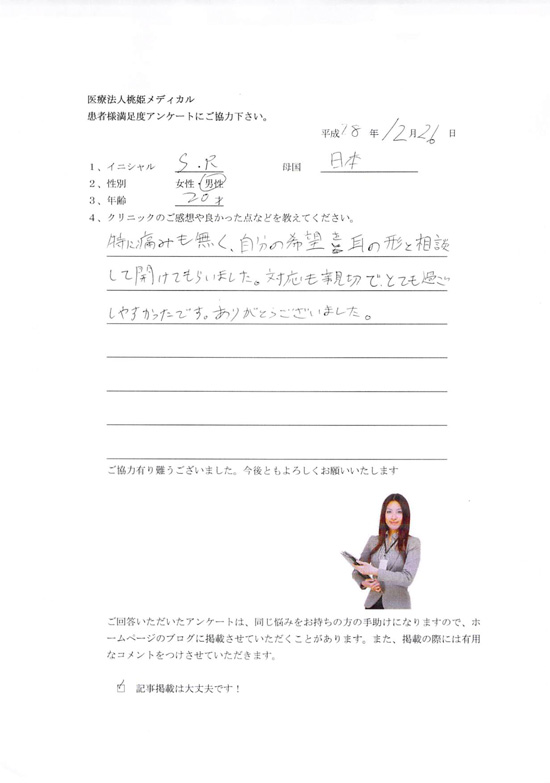 医療法人桃姫メディカル
患者様満足度アンケートにご協力下さい。
平成 18 年 12月 26 日
1、イニシャル S.R 母国 日本
2、性別 女性・男性
3、年齢 20才
4、クリニックのご感想や良かった点などを教えてください。
特に痛みも無く、自分の希望と耳の形と相談
して開けてもらいました。対応も親切で、とても過ごし
しやすかったです。ありがとうございました。
ご協力有り難うございました。今後ともよろしくお願いいたします
ご回答いただいたアンケートは、同じ悩みをお持ちの方の手助けになりますので、ホ
ームページのブログに掲載させていただくことがあります。また、掲載の際には有用
なコメントをつけさせていただきます。
☑ 記事掲載は大丈夫です！